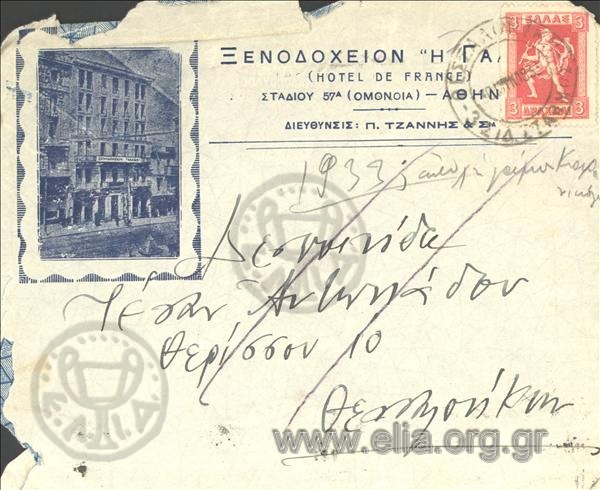 ΞΕΝΟΔΟΧΕΙΟΝ "Η ΓΑΛ
(HOTEL DE FRANCE)
ΣΤΑΔΙΟΥ 57Α (ΟΜΟΝΟΙΑ) — ΑΘΗΝ
ΔΙΕΥΘΥΝΣΙΣ: Π. ΤΖΑΝΝΗΣ & ΣΙΑ
3 ΕΛΛΑΣ 3
3 ΔΡΑΧΜΑΙ 3
1933
Δεσποινίδα
Αντωνιάδου
Θερίσσου 10
Θεσσαλονίκην
Ε.Λ.Ι.Α.
www.elia.org.gr